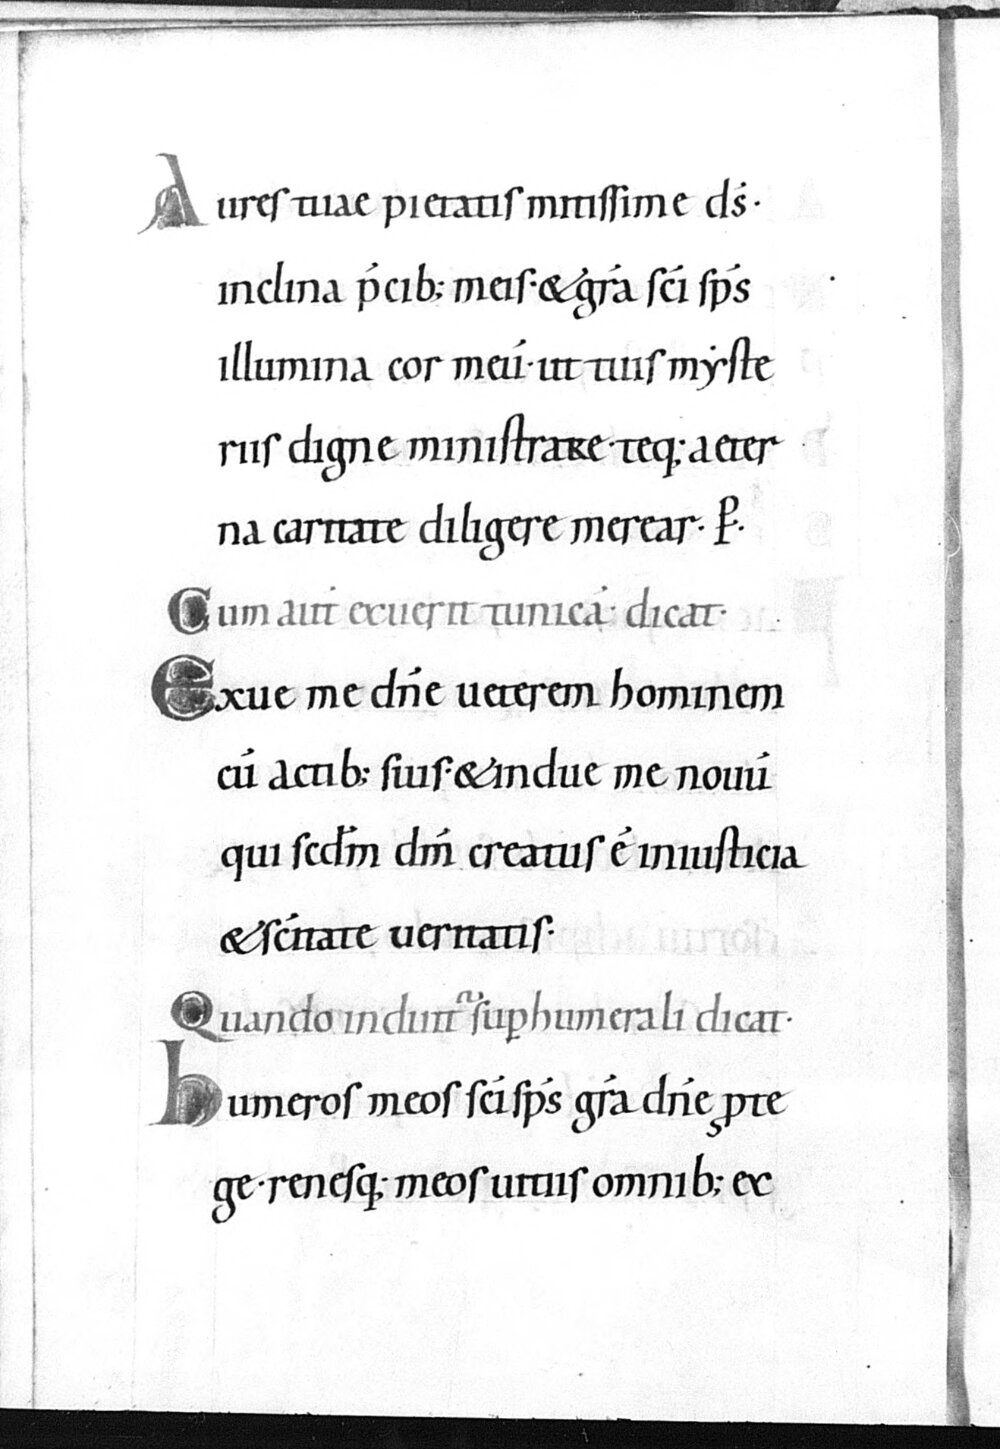 Aures tuae pietatis mitissime ds̄·
inclina p̄cib; meis·& gr̄a sc̄i sp̄s
illumina cor meū·ut tuis mẏste
riis digne ministrare·teq; aeter
na caritate diligere merear· P̄.
Cum aut̄ exuerit tunicā· dicat·
Exue me dn̄e ueterem hominem
cū actib; suis·& indue me nouū
qui scd̄m dm̄ creatus ē iniusticia
& sc̄itate ueritatis·
Quando induit᷑ suꝑhumerali dicat·
humeros meos sc̄i sp̄s gr̄a dn̄e ꝓte
ge·renesq; meos uitiis omnib; ex